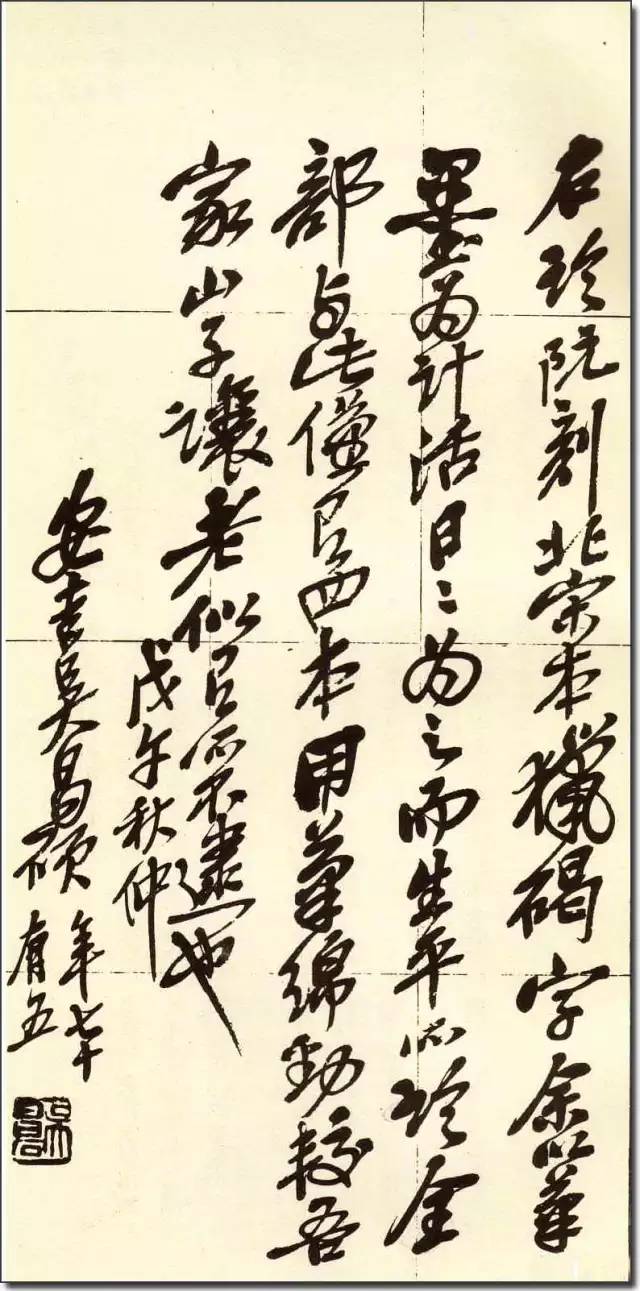 右臨阮刻北宋本獵碣字余以筆
墨为計活日〻为之而生平所臨全
部与此僅有四本用筆綿勁較吾
家山子讓老似有所不逮也
戊午秋仲
安吉吳昌碩年七十
有五